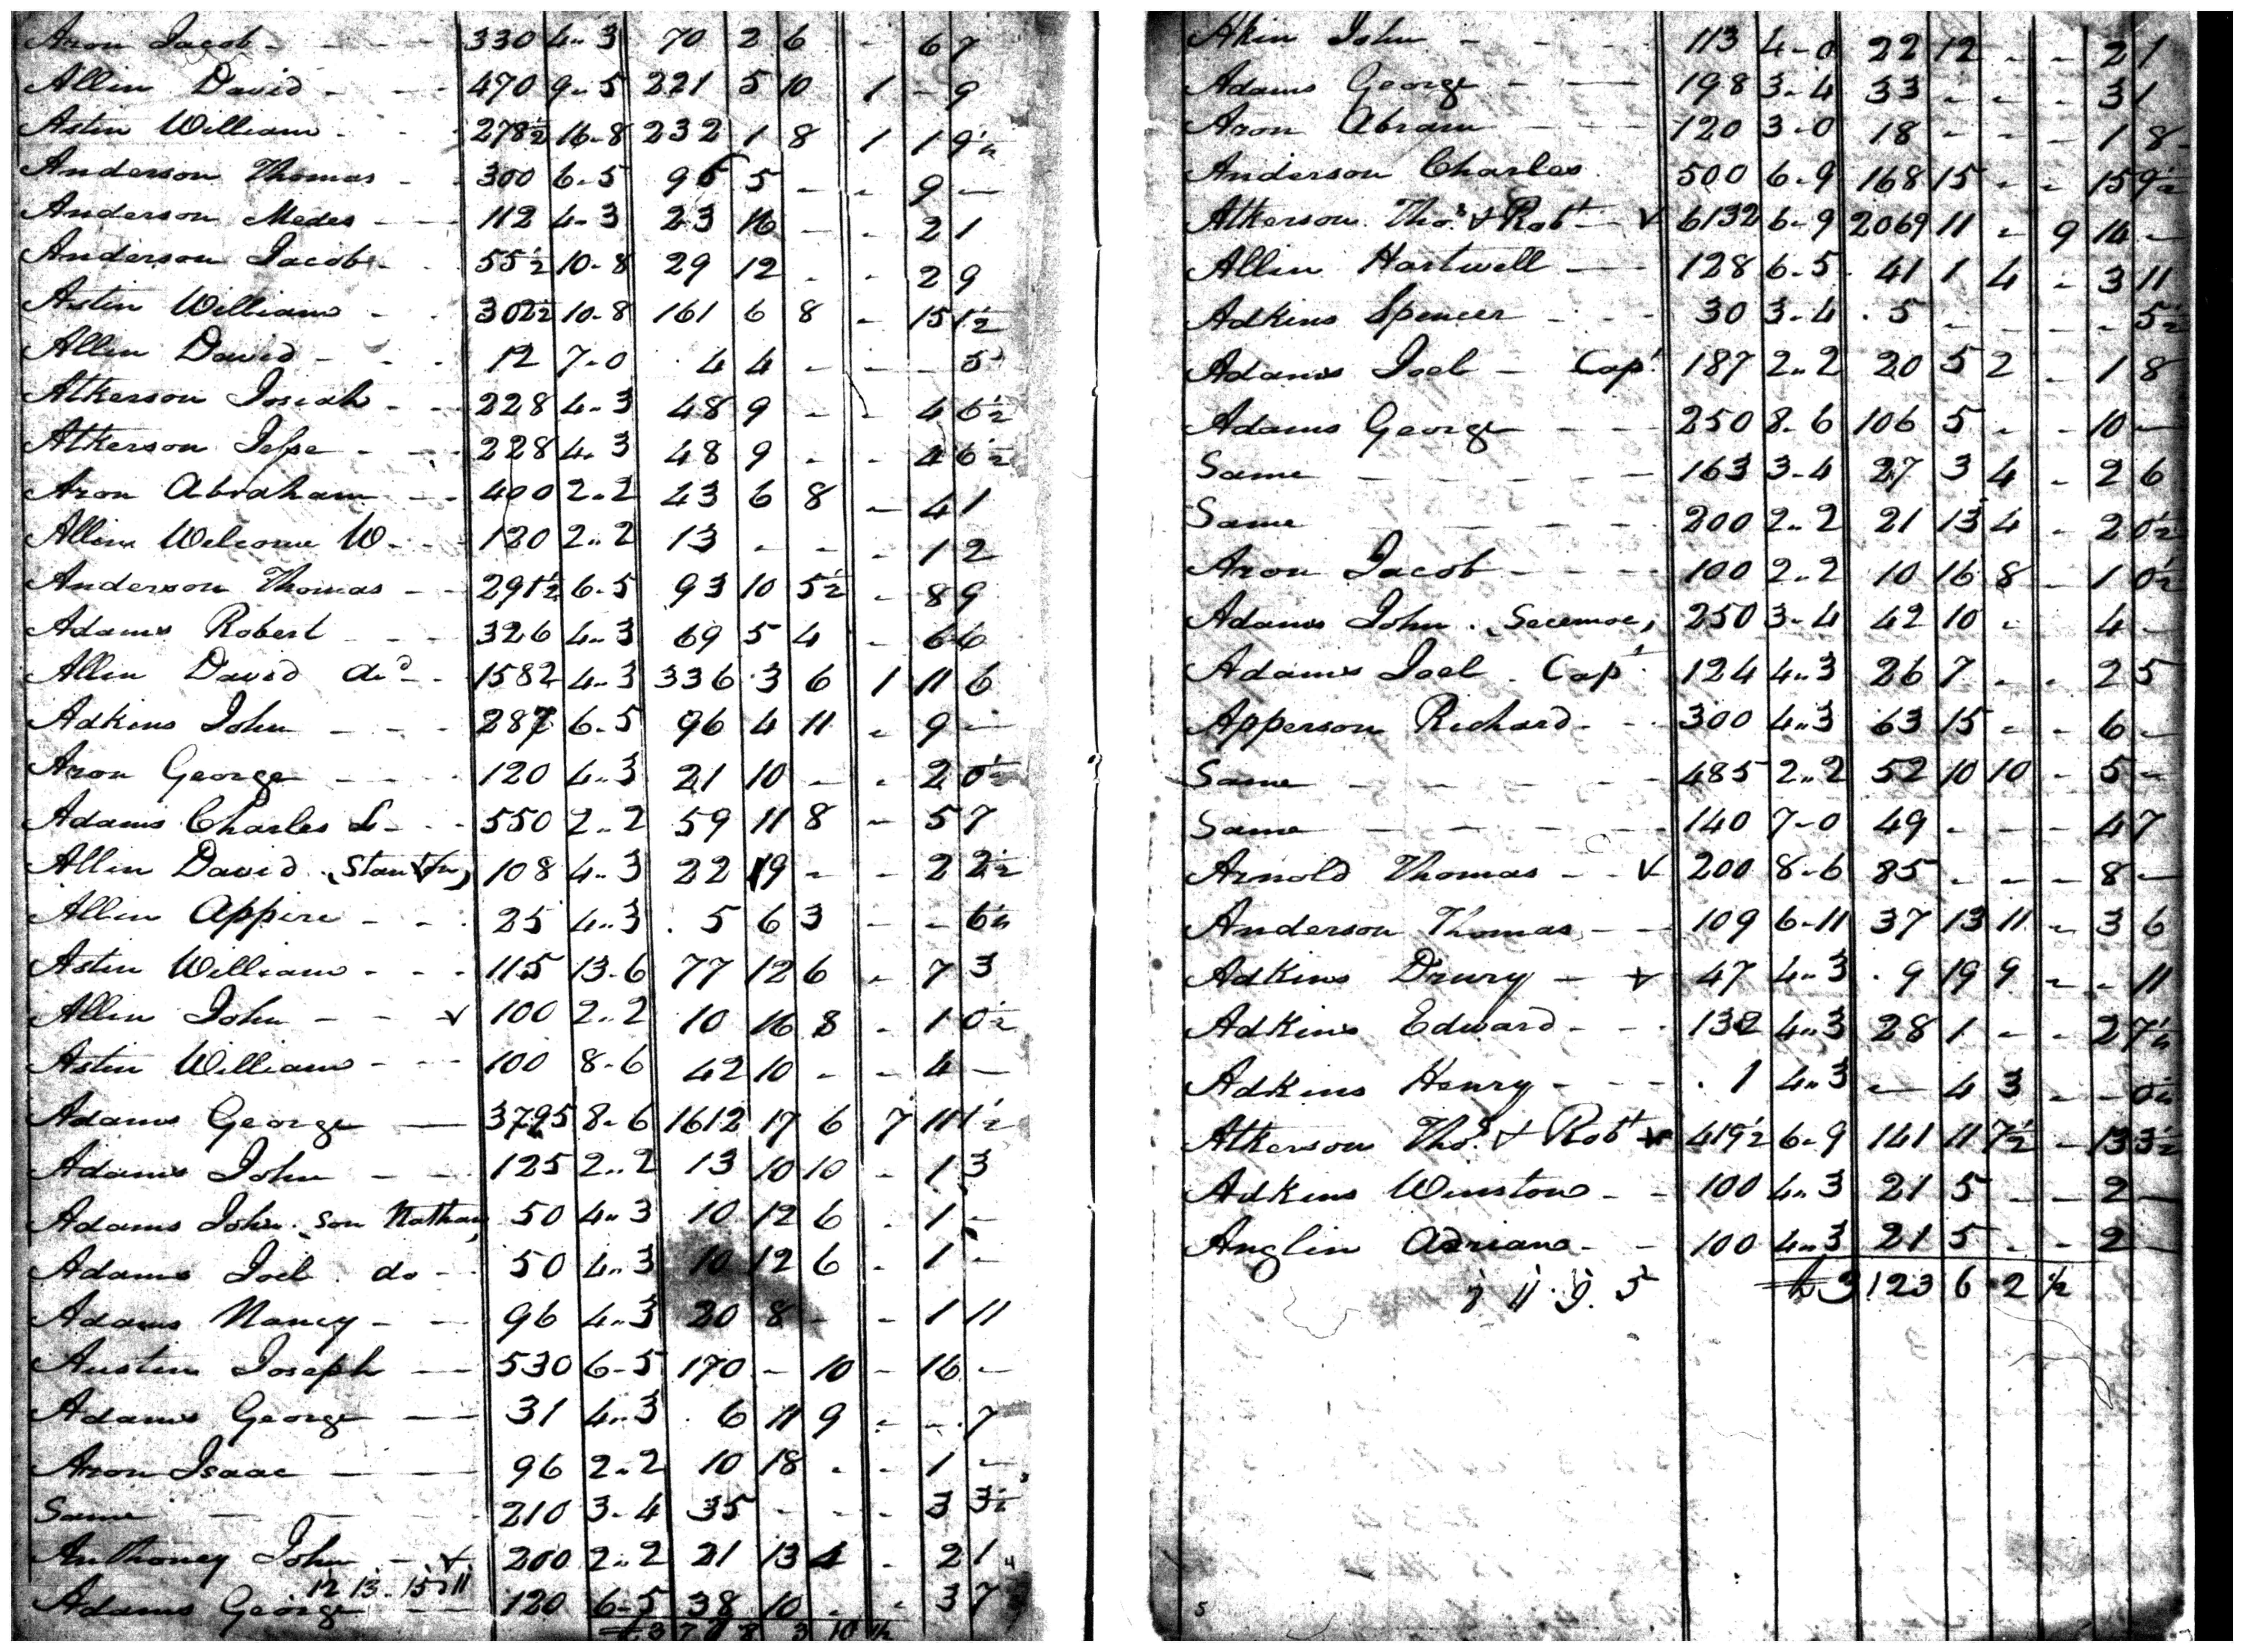 Aron Jacob - - - 330 4..3 70 2 6 - 6 7
Allin David - - - 470 9..5 221 5 10 1 - 9
Astin William - - 278½ 16-8 232 1 8 1 1 9½
Anderson Thomas - - 300 6-5 96 5 - - 9 -
Anderson Medes - - 112 4-3 23 16 - - 2 1
Anderson Jacob - - 55½ 10-8 29 12 - - 2 9
Astin William - - 302½ 10-8 161 6 8 - 15 1½
Allin David - - - 12 7-0 4 4 - - - 5
Atkerson Josiah - - 228 4-3 48 9 - - 4 6½
Atkerson Jesse - - 228 4-3 48 9 - - 4 6½
Aron Abraham - - 400 2..2 43 6 8 - 4 1
Allin Welcome W - - 120 2..2 13 - - - 1 2
Anderson Thomas - - 291½ 6-5 93 10 5½ - 8 9
Adams Robert - - - 326 4..3 69 5 4 - 6 6
Allin David - - 1582 4-3 336 3 6 1 11 6
Adkins John - - - 287 6-5 96 4 11 - 9 -
Aron George - - - 120 4..3 21 10 - - 2 0½
Adams Charles L - - 550 2..2 59 11 8 - 5 7
Allin David (Stanton) 108 4..3 22 19 - - 2 2½
Allin Appire - - - 25 4..3 5 6 3 - - 6½
Astin William - - - 115 13-6 77 12 6 - 7 3
Allin John - - v 100 2..2 10 16 8 - 1 0½
Astin William - - - 100 8-6 42 10 - - 4 -
Adams George - 3795 8-6 1612 17 6 7 11 1½
Adams John - - 125 2..2 13 10 10 - 1 3
Adams John (Son Nathan) 50 4..3 10 12 6 - 1 -
Adams Joel do - 50 4..3 10 12 6 - 1 -
Adams Nancy - - 96 4..3 20 8 - - 1 11
Austin Joseph - 530 6-5 170 - 10 - 16 -
Adams George - - 31 4..3 6 11 9 - - 7
Aron Isaac - - 96 2..2 10 18 - - 1 -
Same - - - 210 3-4 35 - - - 3 3½
Anthoney John - v 200 2..2 21 13 4 - 2 1
12 13 15 11
Adams George - 120 6-5 38 10 - - 3 7
3 10 ½
Akin John - - - 113 4-0 22 12 - - 2 1
Adams George - - 198 3-4 33 - - - 3 1
Aron Abram - - - 120 3-0 18 - - - 1 8
Anderson Charles 500 6-9 168 15 - - 15 9½
Atkerson Thos & Robt - v 6132 6-9 2069 11 - 9 14 -
Allin Hartwell - 128 6-5 41 1 4 - 3 11
Adkins Spencer - - - 30 3-4 5 - - - - 5½
Adams Joel - Capt 187 2..2 20 5 2 - 1 8
Adams George - - 250 8-6 106 5 - - 10 -
Same - - - - - 163 3-4 27 3 4 - 2 6
Same - - - - 200 2..2 21 13 4 - 2 0½
Aron Jacob - - - 100 2..2 10 16 8 - 1 0½
Adams John 250 3-4 42 10 - 4 -
Adams Joel Capt 124 4..3 26 7 - - 2 5
Apperson Richard - - 300 4..3 63 15 - - 6 -
Same - - - - 485 2..2 52 10 10 - 5 -
Same - - - - 140 7-0 49 - - - 4 7
Arnold Thomas - - v 200 8-6 85 - - - 8 -
Anderson Thomas - - 109 6-11 37 13 11 - 3 6
Adkins Drury - v 47 4..3 9 19 9 - - 11
Adkins Edward - - 132 4..3 28 1 - - 2 7½
Adkins Henry - - - 1 4..3 - 4 3 - - 0½
Atkerson Thos & Robt v 419½ 6-9 141 11 7½ - 13 3½
Adkins Winston - - 100 4..3 21 5 - - 2 -
Anglin Adriana - - 100 4..3 21 5 - - 2 -
7 11 9 5 £3123 6 2 ½
5